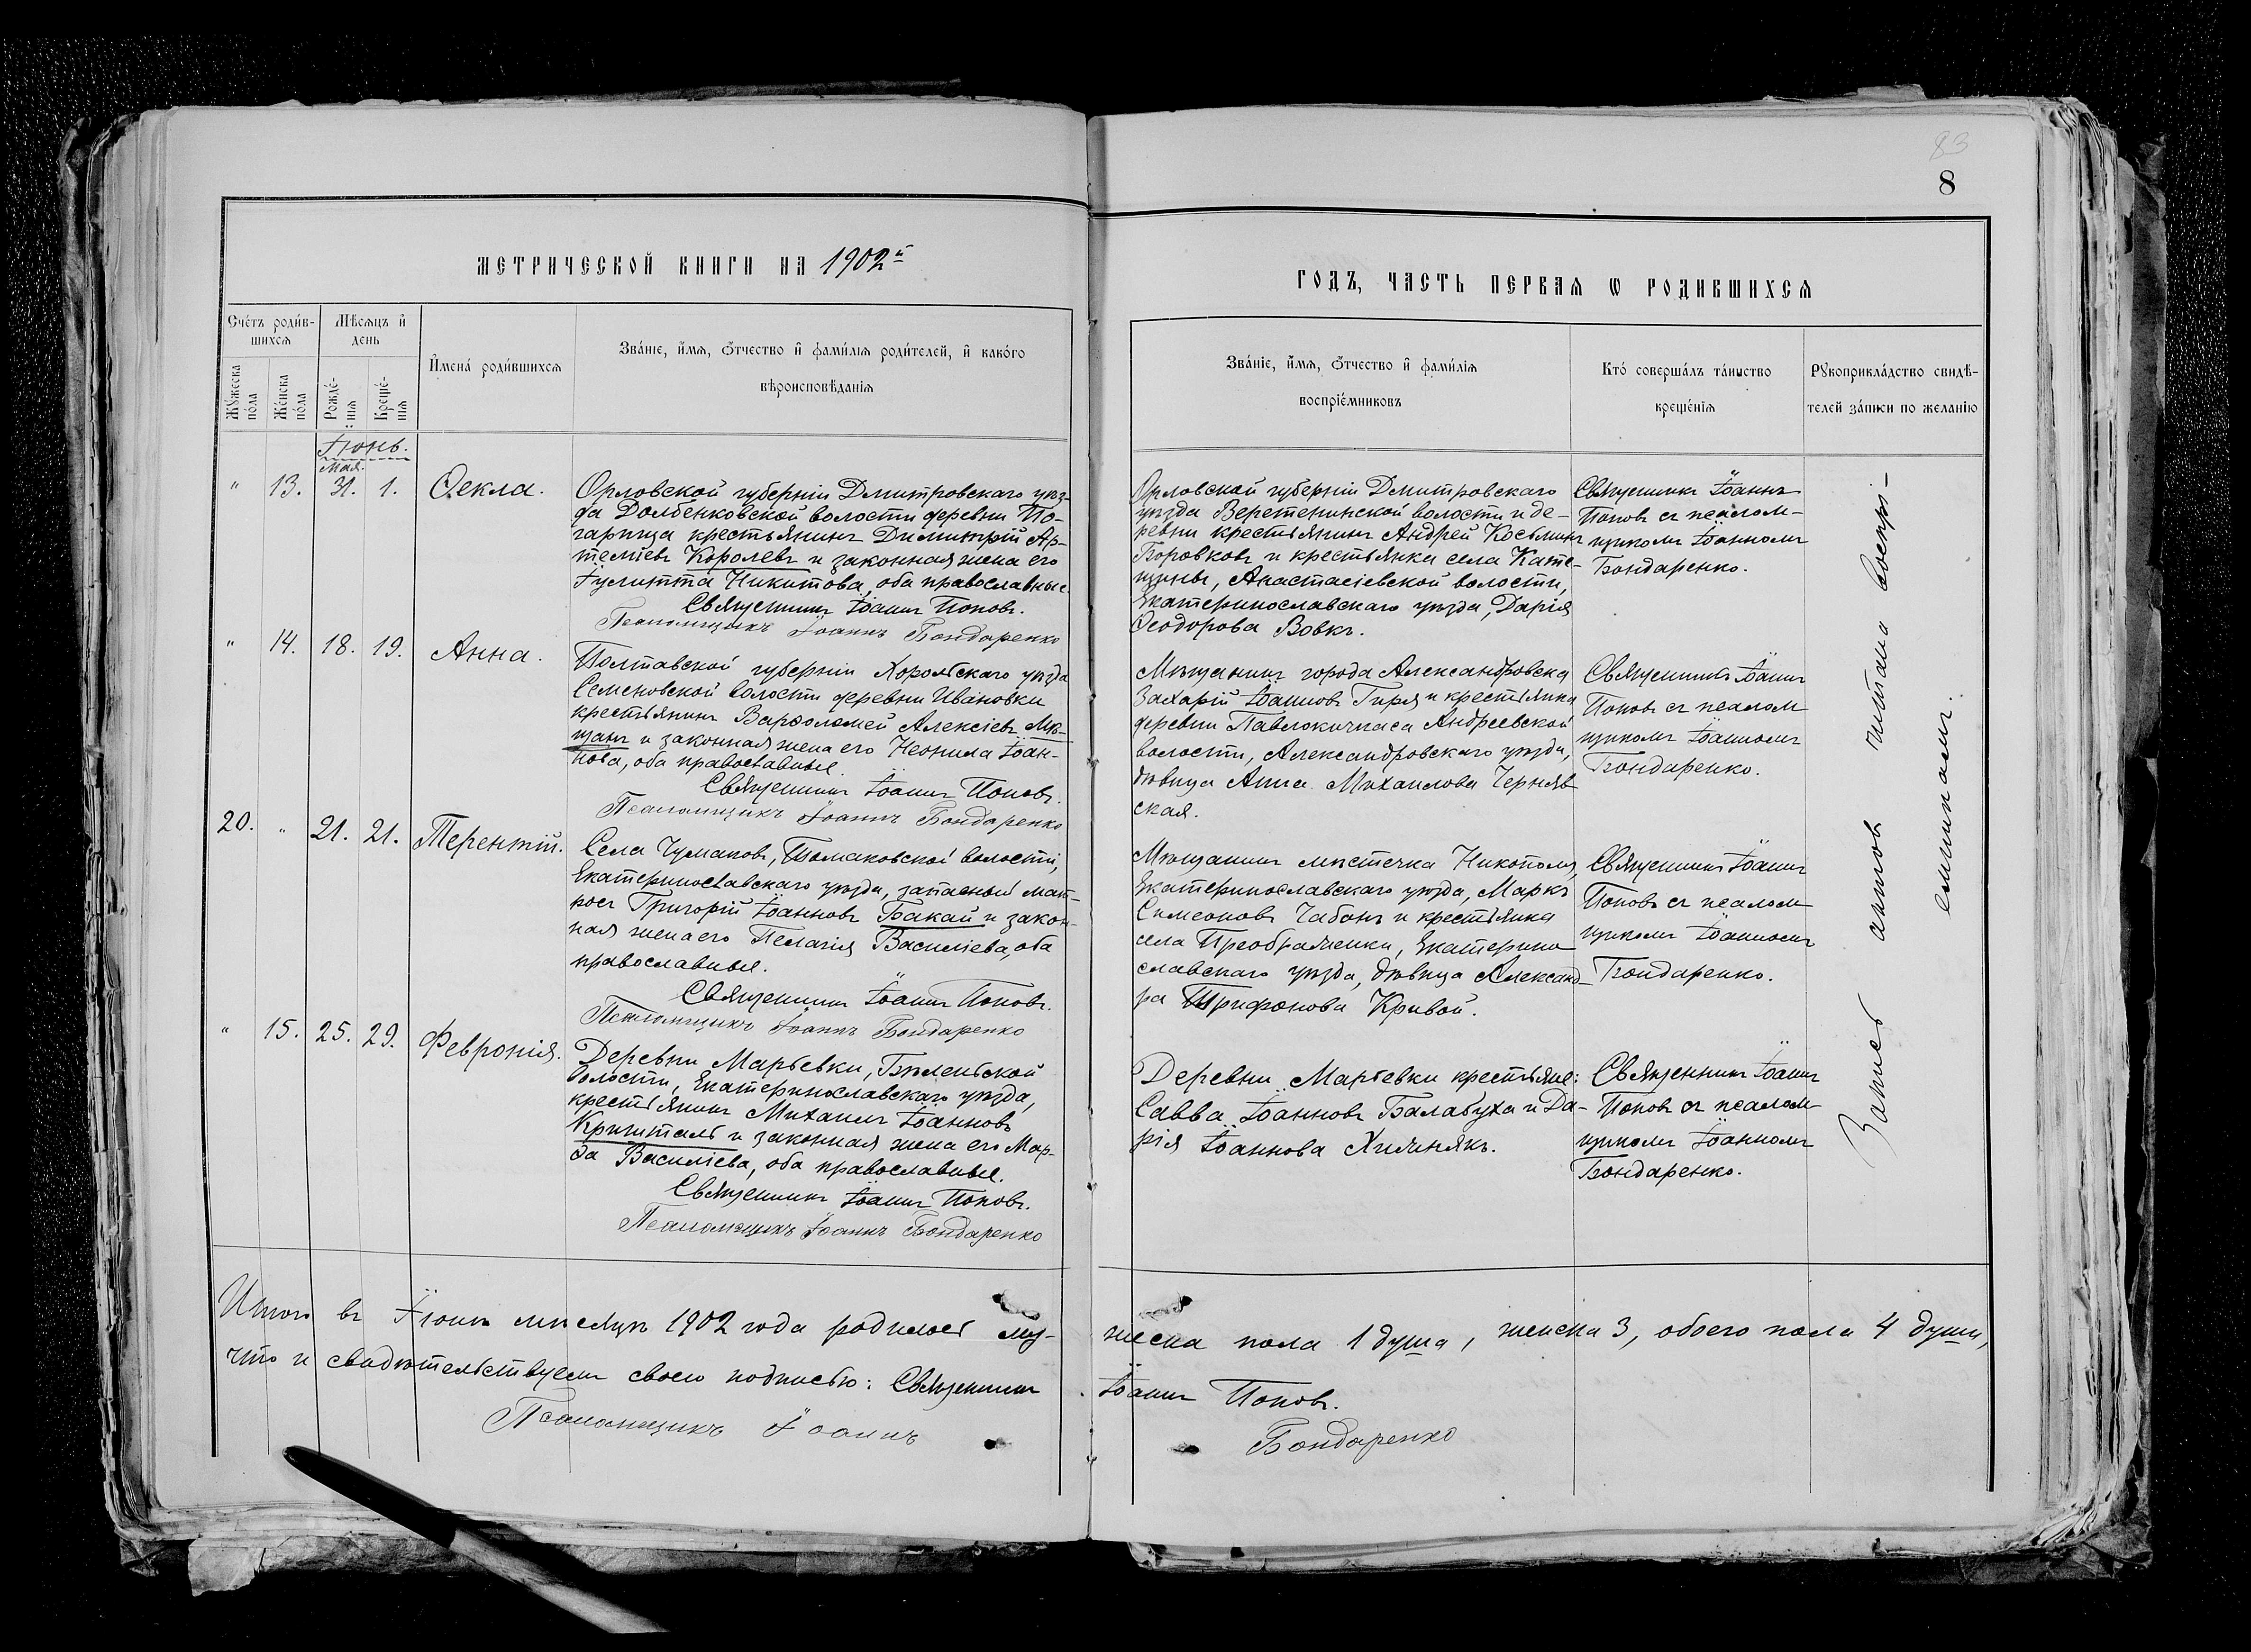 83
8
МЕТРИЧЕСКОЙ КНИГИ НА 1902й
ГОДЪ, ЧАСТЬ ПЕРВАЯ Ѡ РОДИВШИХСЯ
Счетъ родив-
шихся
Мѣсяцъ и
день
Мужеска
пола
Женска
пола
Рожде-
нія
Креще-
нія
Имена родившихся
Званіе, имя, отчество и фамилія родителей, и какого
вѣроисповѣданія
Званіе, имя, отчество и фамилія
воспріемниковъ
Кто совершалъ таинство
крещенія
Рукоприкладство свидѣ-
телей записи по желанію
Іюнь.
Мая.
" 13. 31. 1. Ѳекла.
Орловской губерніи Дмитровскаго уѣз-
да Долбенковской волости деревни По-
гарища крестьянинъ Димитрій Ар-
темьевъ Королевъ и законная жена его
Іулитта Никитова, оба православные.
Священникъ Іоаннъ Поповъ.
Псаломщикъ Іоаннъ Бондаренко
Орловской губерніи Дмитровскаго
уѣзда Веретенинской волости и де-
ревни крестьянинъ Андрей Косьминъ
Боровковъ и крестьянка села Кате-
щины, Анастасіевской волости,
Екатеринославскаго уѣзда, Дарія
Ѳеодорова Вовкъ.
Священникъ Іоаннъ
Поповъ съ псалом-
щикомъ Іоанномъ
Бондаренко.
" 14. 18. 19. Анна.
Полтавской губерніи Хорольскаго уѣзда
Семеновской волости деревни Ивановки
крестьянинъ Варѳоломей Алексіевъ Мѣ-
щанъ и законная жена его Неонила Іоан-
нова, оба православные.
Священникъ Іоаннъ Поповъ.
Псаломщикъ Іоаннъ Бондаренко
Мѣщанинъ города Александровска
Захарій Іоанновъ Гиря и крестьянка
деревни Павлокичкаса Андреевской
волости, Александровскаго уѣзда,
дѣвица Анна Михаилова Черняв
ская.
Священникъ Іоаннъ
Поповъ съ псалом
щикомъ Іоанномъ
Бондаренко.
20. " 21. 21. Терентій.
Села Чумаковъ, Томаковской волости,
Екатеринославскаго уѣзда, запасный мат-
росъ Григорій Іоанновъ Бакай и закон-
ная жена его Пелагія Василіева, оба
православные.
Священникъ Іоаннъ Поповъ.
Псаломщикъ Іоаннъ Бондаренко
Мѣщанинъ мѣстечка Никополя,
Екатеринославскаго уѣзда, Маркъ
Симеоновъ Чабанъ и крестьянка
села Преображенки, Екатерино
славскаго уѣзда, дѣвица Александ-
ра Трифонова Кривой.
Священникъ Іоаннъ
Поповъ съ псалом
щикомъ Іоанномъ
Бондаренко.
" 15. 25. 29. Февронія.
Деревни Марьевки, Бѣленьской
волости, Екатеринославскаго уѣзда,
крестьянинъ Михаилъ Іоанновъ
Кришталь и законная жена его Мар-
ѳа Василіева, оба православные.
Священникъ Іоаннъ Поповъ.
Псаломщикъ Іоаннъ Бондаренко
Деревни Марьевки крестьяне:
Савва Іоанновъ Балабуха и Да-
рія Іоаннова Химнякъ.
Священникъ Іоаннъ
Поповъ съ псалом-
щикомъ Іоанномъ
Бондаренко.
Запись актовъ читана воспрі-
емникамъ.
Итого въ Іюнѣ мѣсяцѣ 1902 года родилось му-
жеска пола 1 душа, женска 3, обоего пола 4 души,
что и свидѣтельствуемъ своею подписью: Священникъ
Іоаннъ Поповъ.
Псаломщикъ Іоаннъ
Бондаренко